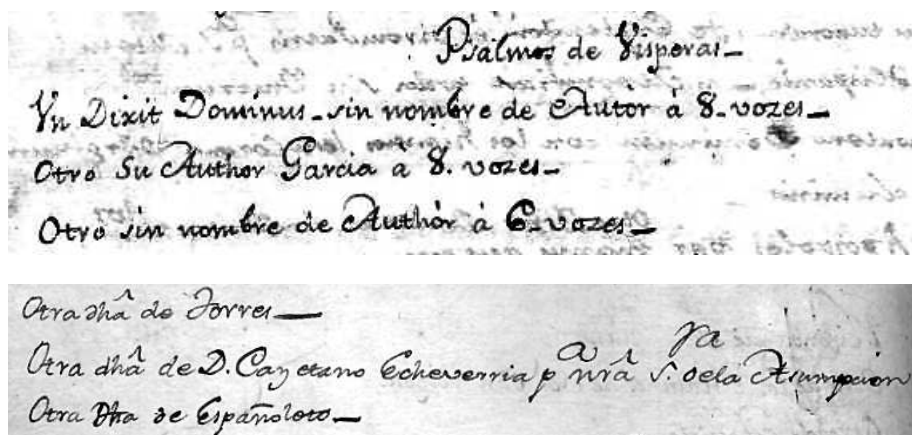 Psalmos de Visperas_
Vn Dixit Dominus_ sin nombre de Autor à 8. vozes_
Otro Su Author Garcia a 8. vozes_
Otro sin nombre de Author à 6. vozes_
Otra dhâ de Torres_
Otra dhâ de D. Cayetano Echeverria pa nrâ Sra de la Asumpcion
Otra Dha de Españoleto_